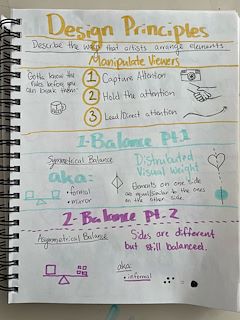 Design Principles
Describe the way that artists arrange elements
Manipulate Viewers
Gotta know the
rules before you
can break them
1 Capture Attention
2 Hold the attention
3 Lead/Direct attention
1. Balance Pt.1
Symmetrical Balance
Distributed
Visual Weight
aka:
• formal
• mirror
Elements on one side
similar to the ones
on the other side.
2. Balance Pt. 2
Asymmetrical Balance
Sides are different
but still balanced.
aka:
• informal